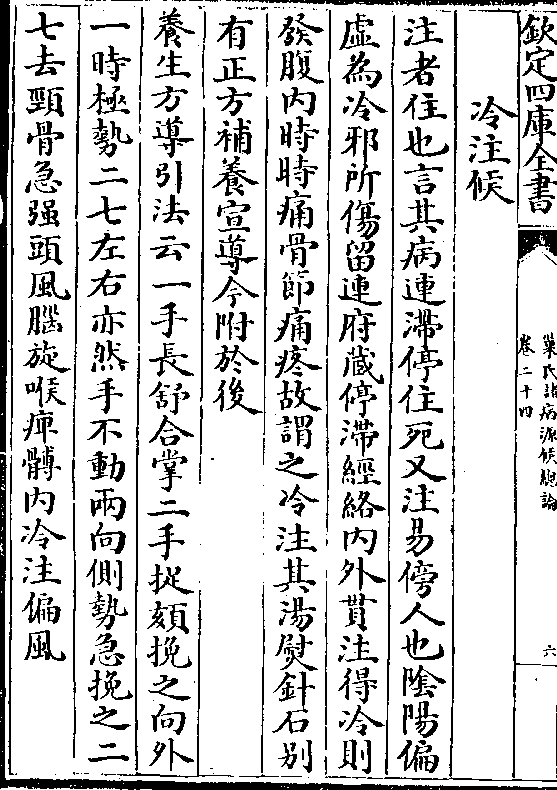 欽定四庫全書
冷注候
注者住也言其病連滯停住死又注易傍人也陰陽偏
虛為冷邪所傷留連府藏停滯經絡内外貫注得冷則
發腹内時時痛骨節痛疼故謂之冷注其湯熨針石别
有正方補養宣導今附於後
養生方導引法云一手長舒合掌二手捉頦挽之向外
一時極勢二七左右亦然手不動兩向側勢急挽之二
七去頸骨急强頭風腦旋喉痺髆内冷注偏風
巢氏諸病源候總論
卷二十四
六